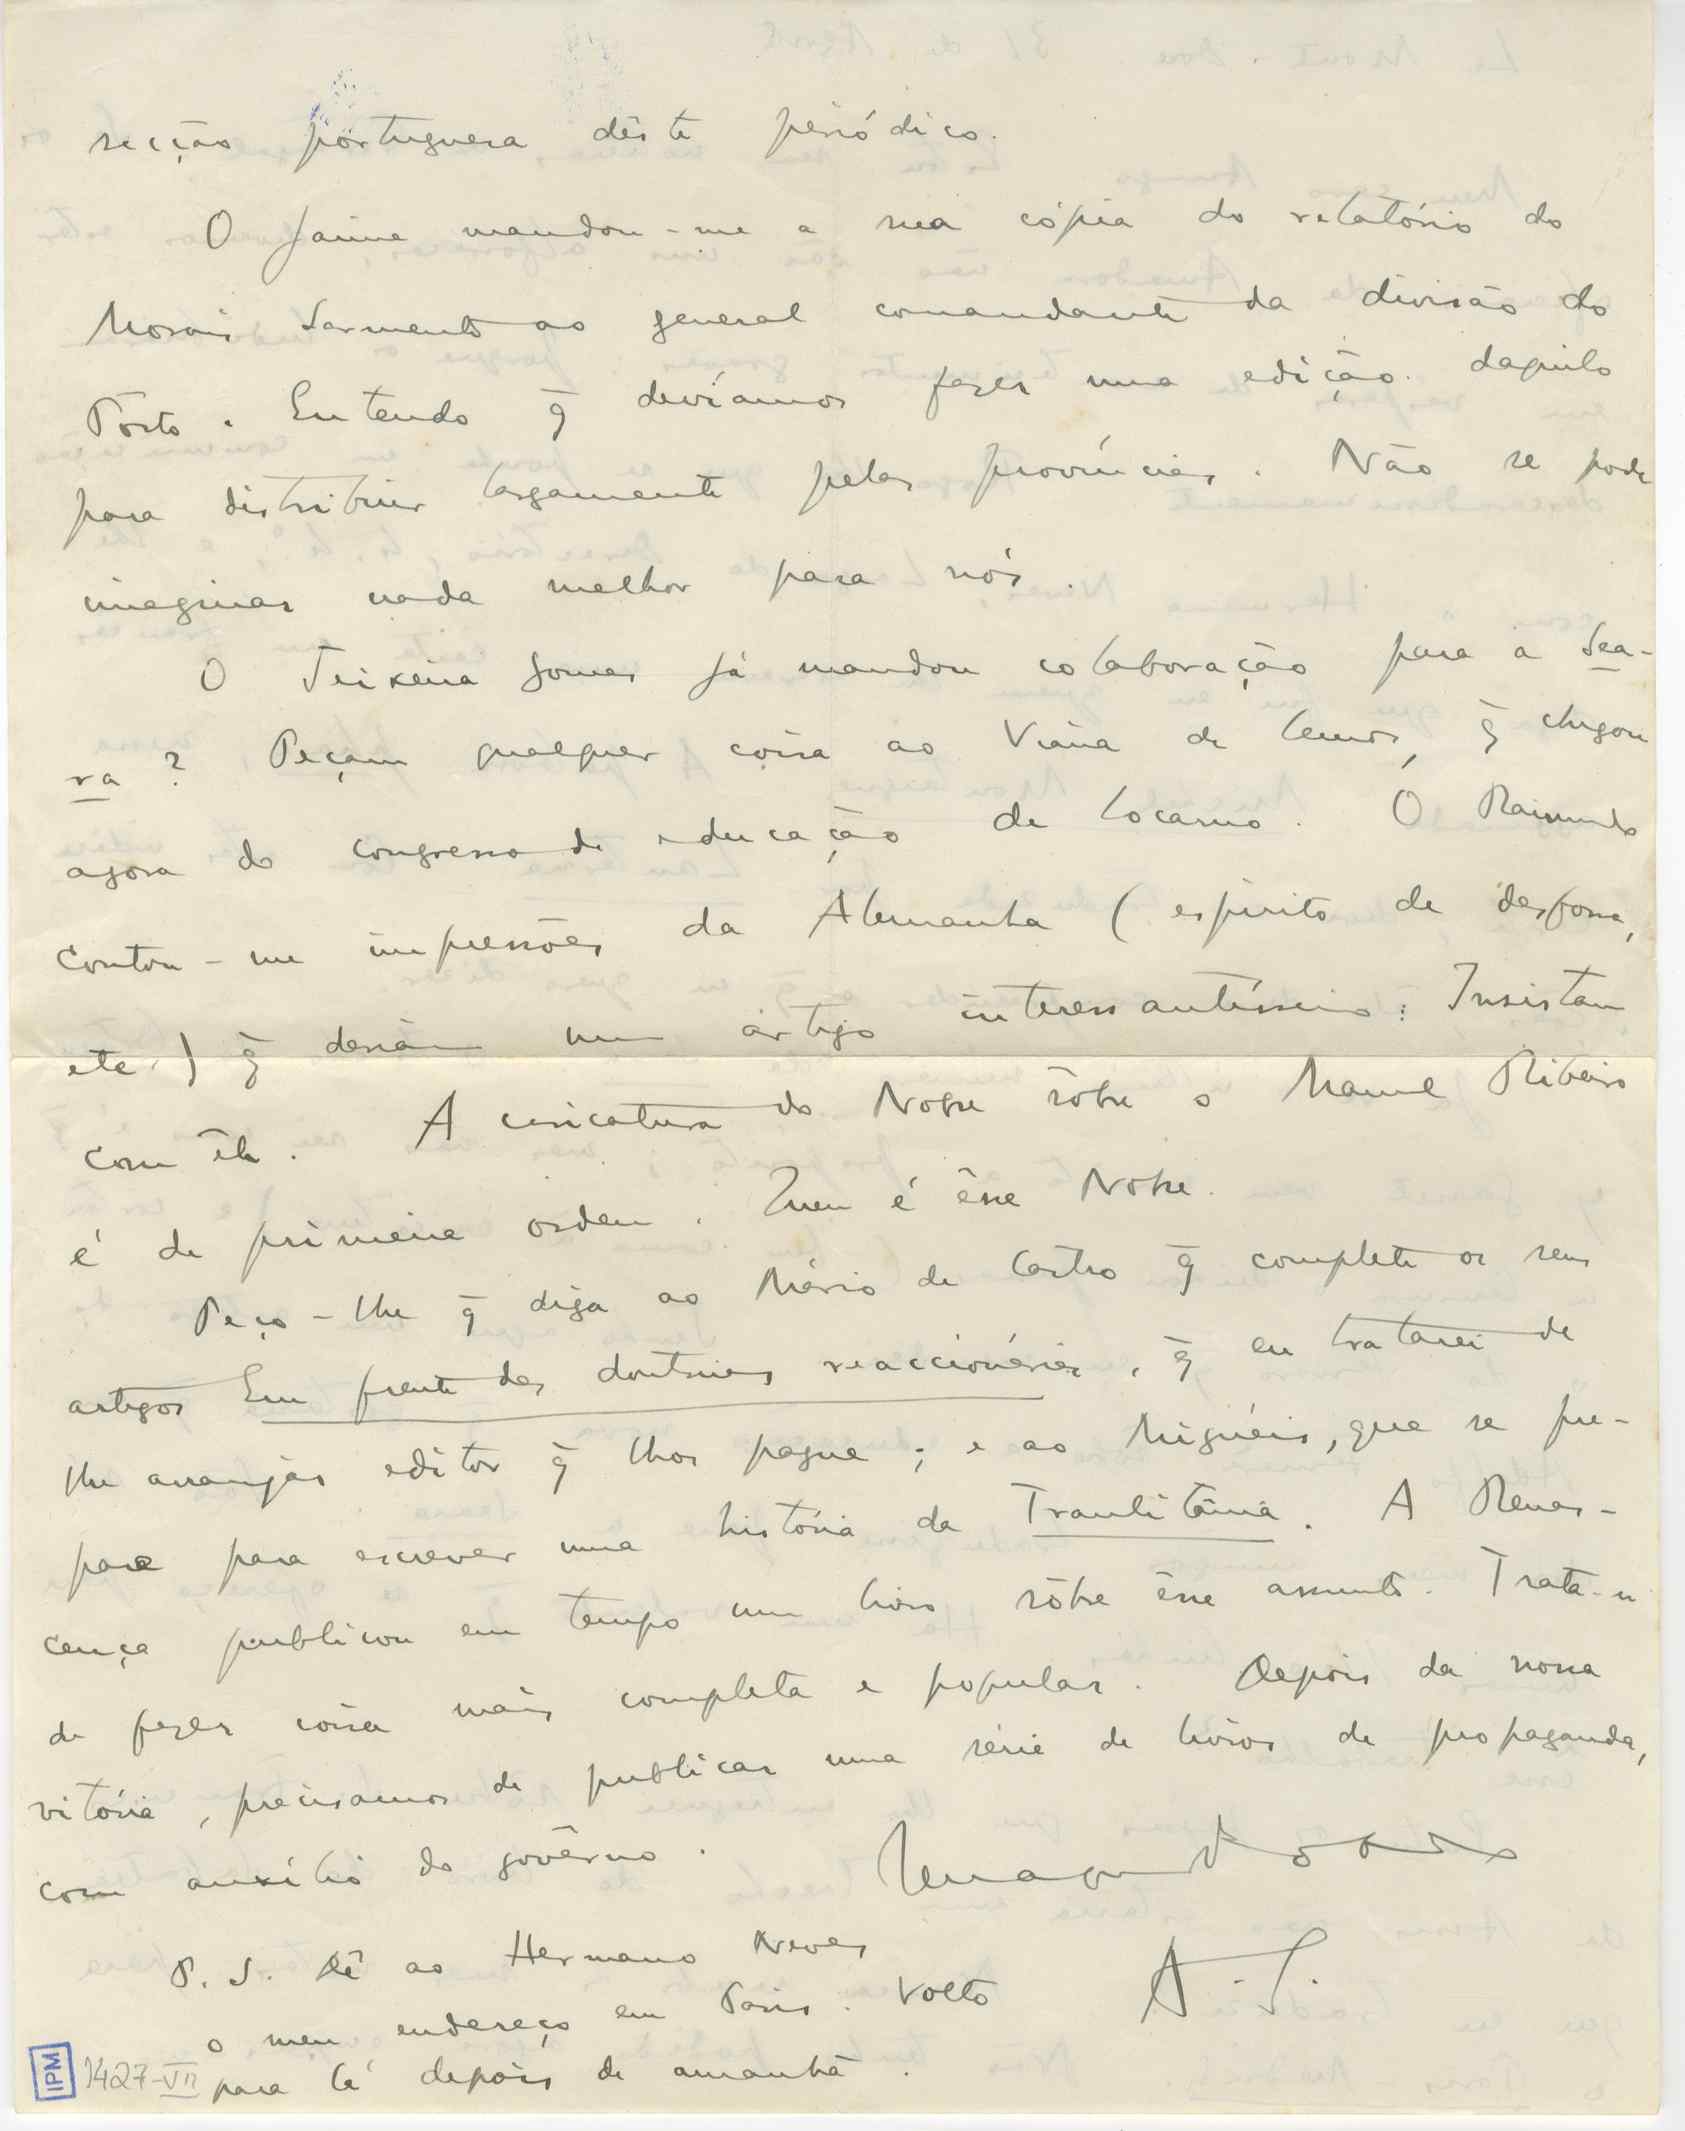 secção portuguesa dêste periódico.
O Jaime mandou-me a sua cópia do relatório do
Morais Sarmento ao general comandante da divisão do
Pôrto. Entendo q̄ devíamos fazer uma edição daquilo
para distribuir largamente pelas províncias. Não se pode
imaginar nada melhor para nós.
O Teixeira Gomes já mandou colaboração para a Sea-
ra? Peçam qualquer coisa ao Viana de Lemos, q̄ chegou
agora do congresso de educação de Locarno. O Raimundo
contou-me impressões da Alemanha (espírito de desforra,
etc.) q̄ dariam um artigo interessantíssimo: Insistam
com êle. A caricatura do Nobre sôbre o Manuel Ribeiro
é de primeira ordem. Quem é êsse Nobre.
Peço-lhe q̄ diga ao Mário de Castro q̄ complete os seus
artigos Em frente das doutrinas reaccionárias, q̄ eu tratarei de
lhe arranjar editor q̄ lhos pague; e ao Miguéis, que se pre-
pare para escrever uma história da Traulitânia. A Renas-
cença publicou em tempo um livro sôbre êsse assunto. Trata-se
de fazer coisa mais completa e popular. Depois da nossa
vitória, precisamos de publicar uma série de livros de propaganda,
com auxílio do govêrno.
A. S.
P. S. Dê ao Hermano Neves
o meu endereço em Paris. Volto
para lá depois de amanhã.
IPM 1427-VII